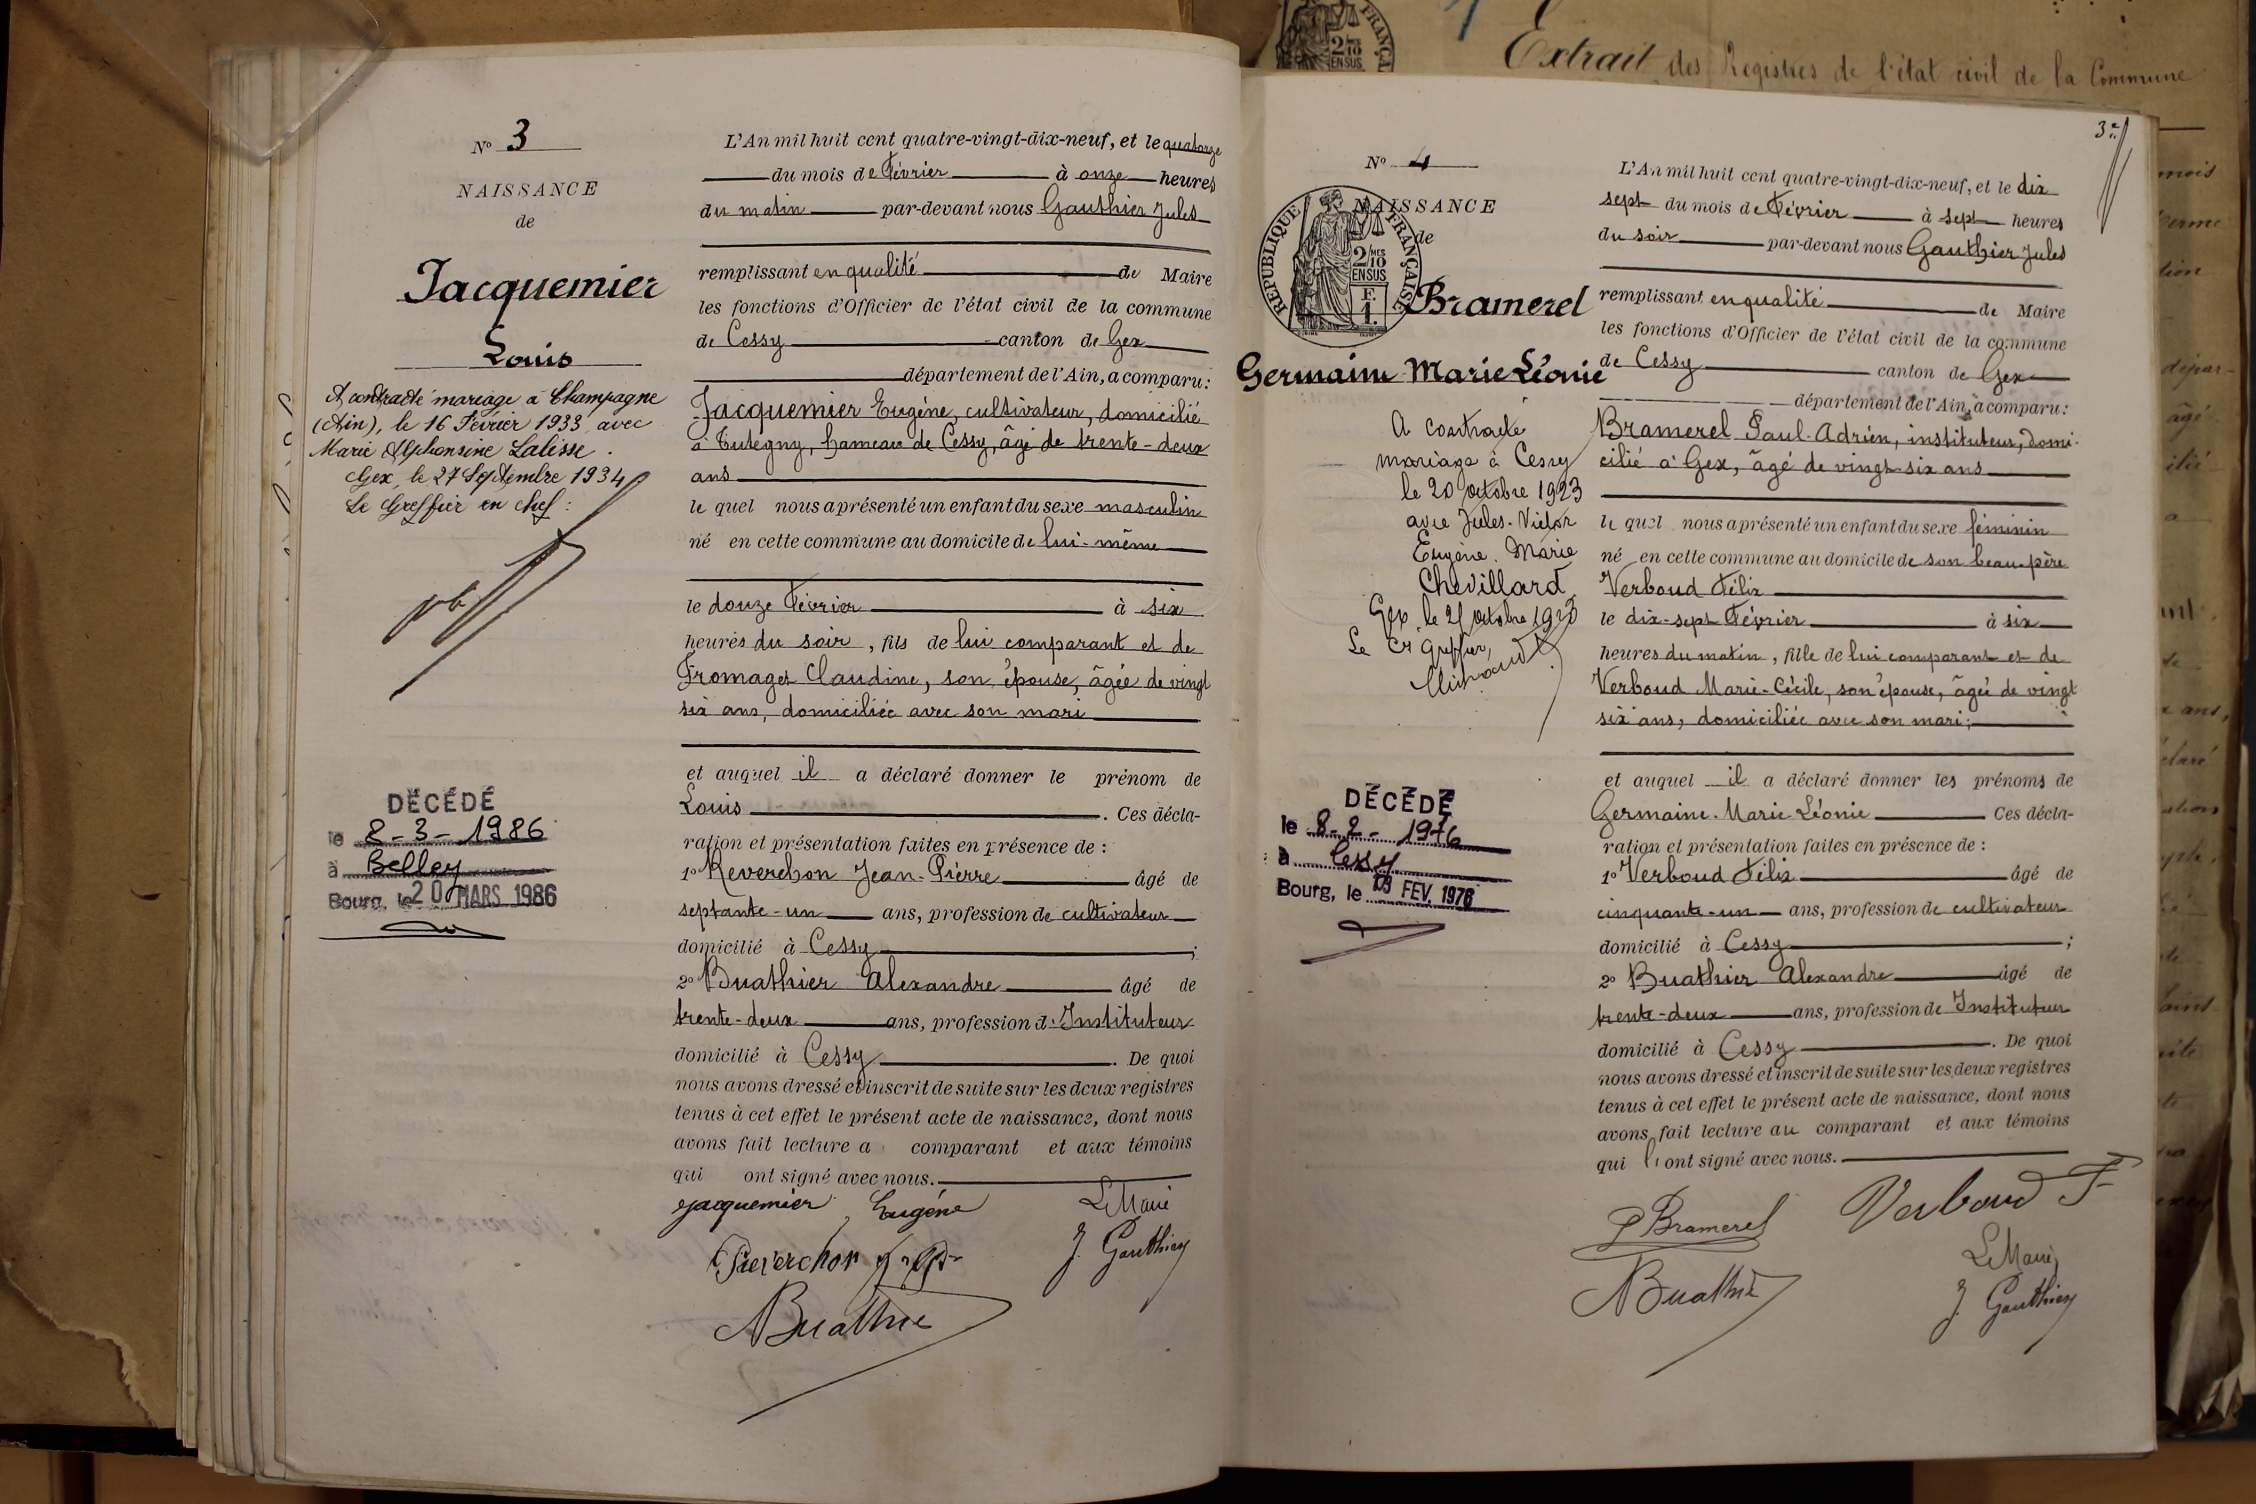 Extrait des Registres de l'état civil de la Commune
N° 3
NAISSANCE
de
Jacquemier
Louis
A contracté mariage à Champagne
(Ain), le 16 Février 1933 avec
Marie Alphonsine Lalisse.
Gex, le 27 Septembre 1934
Le Greffier en chef :
DÉCÉDÉ
le 8-3-1986
à Belley
Bourg, le 20 MARS 1986
L'An mil huit cent quatre-vingt-dix-neuf, et le quatorze
du mois de Février à onze heures
du matin par-devant nous Gauthier Jules
remplissant en qualité de Maire
les fonctions d'Officier de l'état civil de la commune
de Cessy canton de Gex
département de l'Ain, a comparu :
Jacquemier Eugène, cultivateur, domicilié
à Tutegny, hameau de Cessy, âgé de trente-deux
ans
le quel nous a présenté un enfant du sexe masculin
né en cette commune au domicile de lui-même
le douze Février à six
heures du soir, fils de lui comparant et de
Fromaget Claudine, son épouse, âgée de vingt
six ans, domiciliée avec son mari
et auquel il a déclaré donner le prénom de
Louis. Ces décla-
ration et présentation faites en présence de :
1° Reverchon Jean-Pierre âgé de
septante-un ans, profession de cultivateur
domicilié à Cessy ;
2° Buathier Alexandre âgé de
trente-deux ans, profession d'Instituteur
domicilié à Cessy. De quoi
nous avons dressé et inscrit de suite sur les deux registres
tenus à cet effet le présent acte de naissance, dont nous
avons fait lecture a comparant et aux témoins
qui ont signé avec nous.
Jacquemier Eugène Le Maire
Reverchon J. Gauthier
Buathier
3e
N° 4
NAISSANCE
de
RÉPUBLIQUE FRANÇAISE
2/10 MES
EN SUS
F.
1.
Bramerel
Germaine Marie Léonie
A contracté
mariage à Cessy
le 20 octobre 1923
avec Jules-Victor
Eugène Marie
Chevillard
Gex, le 21 octobre 1923
Le Cs Greffier,
DÉCÉDÉE
le 8-2-1976
à Cessy
Bourg, le FEV. 1976
L'An mil huit cent quatre-vingt-dix-neuf, et le dix
sept du mois de Février à sept heures
du soir par-devant nous Gauthier Jules
remplissant en qualité de Maire
les fonctions d'Officier de l'état civil de la commune
de Cessy canton de Gex
département de l'Ain, a comparu :
Bramerel Paul-Adrien, instituteur, domi-
cilié à Gex, âgé de vingt-six ans
le quel nous a présenté un enfant du sexe féminin
né en cette commune au domicile de son beau-père
Verboud Félix
le dix-sept Février à six
heures du matin, fille de lui comparant et de
Verboud Marie-Cécile, son épouse, âgée de vingt
six ans, domiciliée avec son mari ;
et auquel il a déclaré donner les prénoms de
Germaine-Marie-Léonie Ces décla-
ration et présentation faites en présence de :
1° Verboud Félix âgé de
cinquante-un ans, profession de cultivateur
domicilié à Cessy ;
2° Buathier Alexandre âgé de
trente-deux ans, profession de Instituteur
domicilié à Cessy. De quoi
nous avons dressé et inscrit de suite sur les deux registres
tenus à cet effet le présent acte de naissance, dont nous
avons fait lecture au comparant et aux témoins
qui ont signé avec nous.
P Bramerel Verboud F
Le Maire
Buathier J. Gauthier